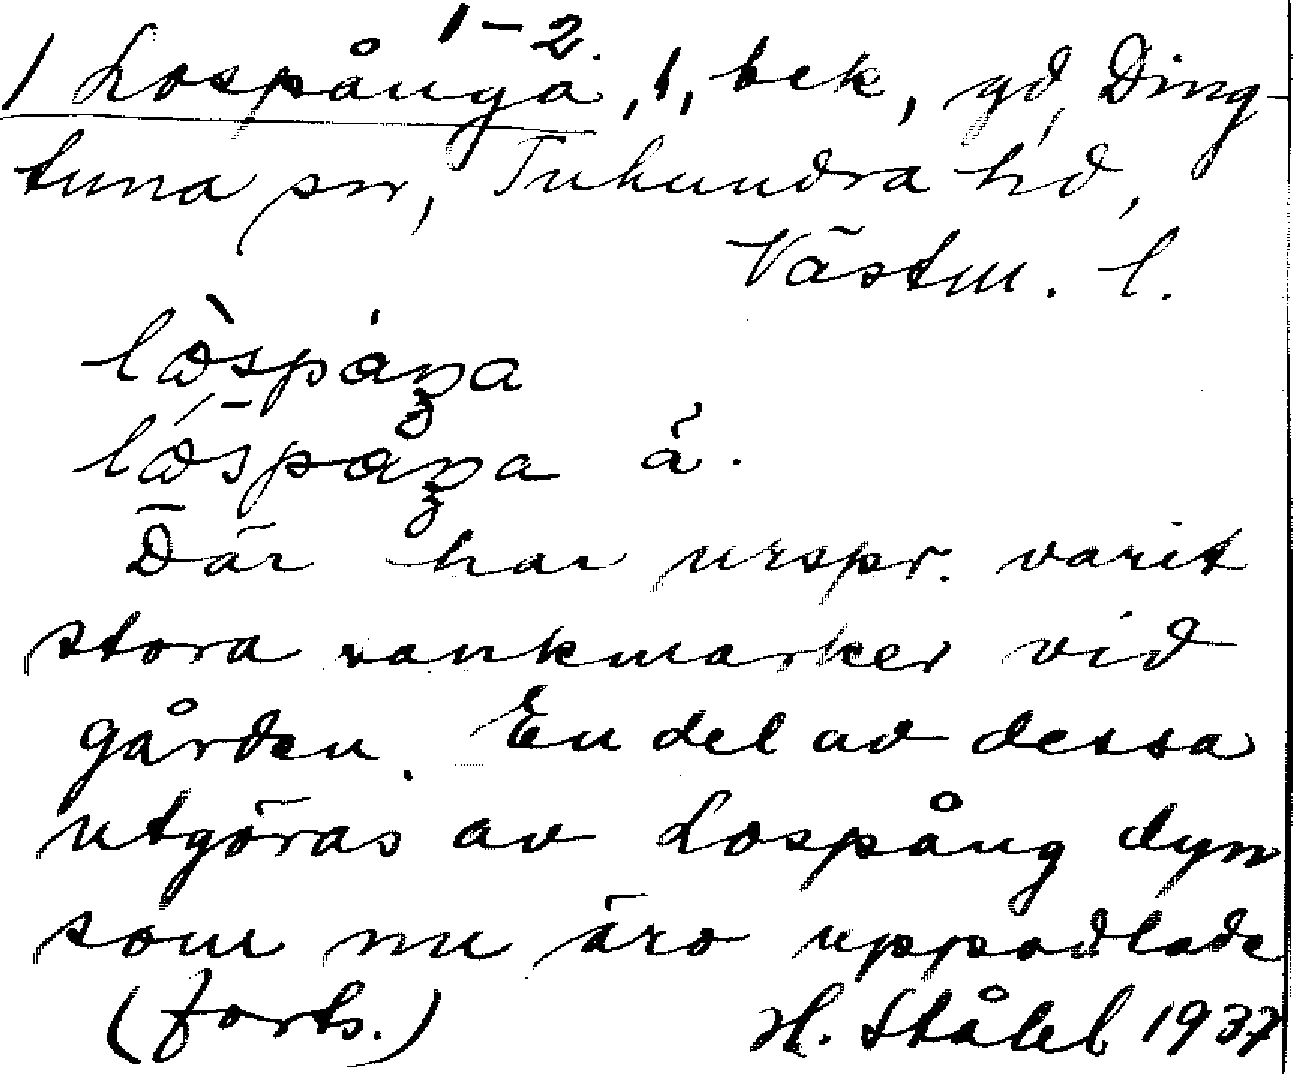 1-2.
1 Lospånga, 1, bek, gd, Ding-
tuna sn, Tuhundra hd,
Västm. l.
Där har urspr. varit
stora vankmarker vid
gården. En del av dessa
utgöras av Lospång dyn
som nu äro uppodlade
(forts.) H. Ståhl 1937